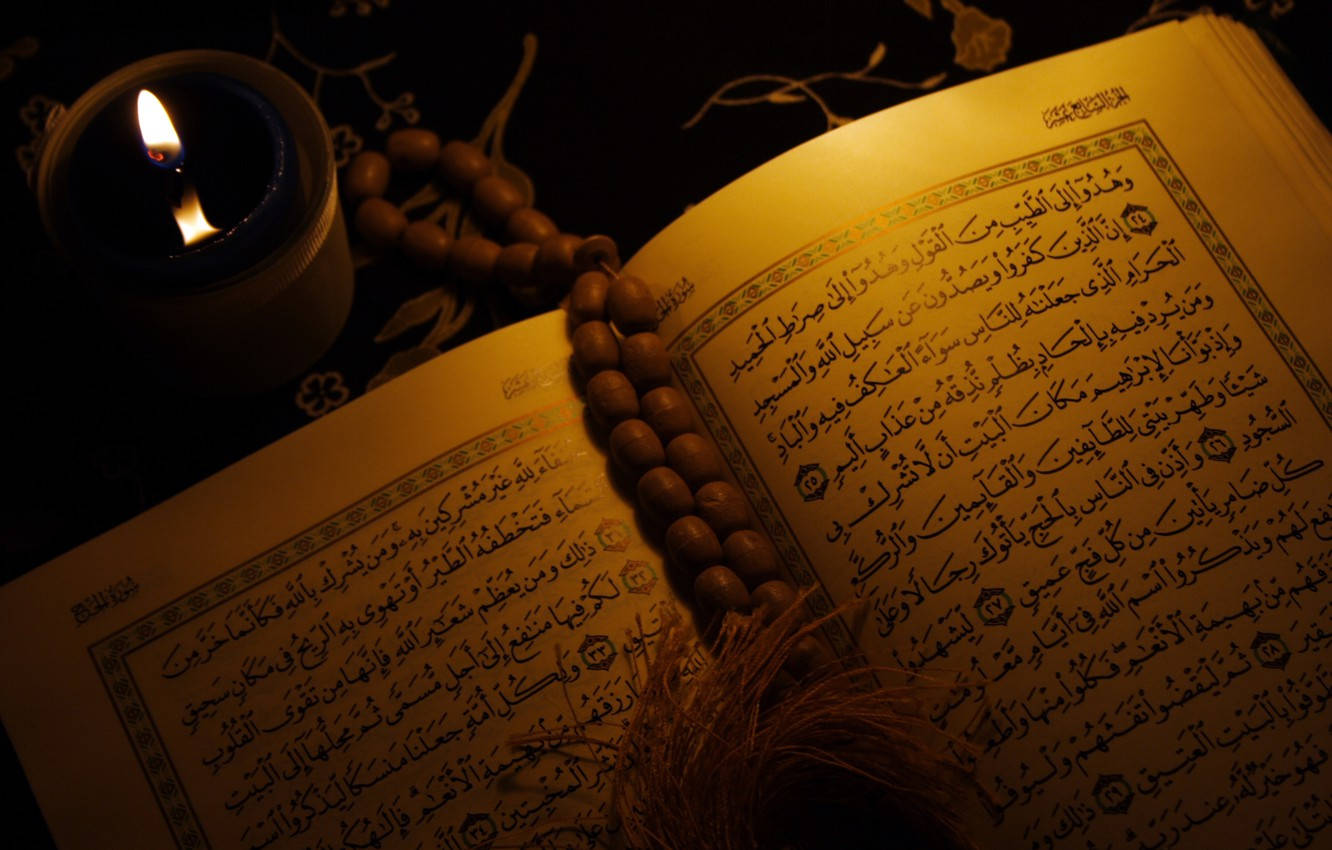 الجزء السابع عشر
سورة الحج
وَهُدُوٓا۟ إِلَى ٱلطَّيِّبِ مِنَ ٱلْقَوْلِ وَهُدُوٓا۟ إِلَىٰ صِرَٰطِ ٱلْحَمِيدِ
٢٤ إِنَّ ٱلَّذِينَ كَفَرُوا۟ وَيَصُدُّونَ عَن سَبِيلِ ٱللَّهِ وَٱلْمَسْجِدِ
ٱلْحَرَامِ ٱلَّذِى جَعَلْنَٰهُ لِلنَّاسِ سَوَآءً ٱلْعَٰكِفُ فِيهِ وَٱلْبَادِ
وَمَن يُرِدْ فِيهِ بِإِلْحَادٍۭ بِظُلْمٍ نُّذِقْهُ مِنْ عَذَابٍ أَلِيمٍ ٢٥
وَإِذْ بَوَّأْنَا لِإِبْرَٰهِيمَ مَكَانَ ٱلْبَيْتِ أَن لَّا تُشْرِكْ بِى
شَيْـًٔا وَطَهِّرْ بَيْتِىَ لِلطَّآئِفِينَ وَٱلْقَآئِمِينَ وَٱلرُّكَّعِ
ٱلسُّجُودِ ٢٦ وَأَذِّن فِى ٱلنَّاسِ بِٱلْحَجِّ يَأْتُوكَ رِجَالًا وَعَلَىٰ
كُلِّ ضَامِرٍ يَأْتِينَ مِن كُلِّ فَجٍّ عَمِيقٍ ٢٧ لِّيَشْهَدُوا۟
لَهُمْ وَيَذْكُرُوا۟ ٱسْمَ ٱللَّهِ فِىٓ أَيَّامٍ مَّعْلُومَٰتٍ
مِّنۢ بَهِيمَةِ ٱلْأَنْعَٰمِ فَكُلُوا۟ مِنْهَا وَأَطْعِمُوا۟
٢٨ ثُمَّ لْيَقْضُوا۟ تَفَثَهُمْ وَلْيُوفُوا۟
بِٱلْبَيْتِ ٱلْعَتِيقِ ٢٩ ذَٰلِكَ وَمَن
فَهُوَ خَيْرٌ لَّهُۥ عِندَ رَبِّهِۦ
سورة الحج
لِلَّهِ غَيْرَ مُشْرِكِينَ بِهِۦ وَمَن يُشْرِكْ بِٱللَّهِ فَكَأَنَّمَا خَرَّ مِنَ
فَتَخْطَفُهُ ٱلطَّيْرُ أَوْ تَهْوِى بِهِ ٱلرِّيحُ فِى مَكَانٍ سَحِيقٍ
٣١ ذَٰلِكَ وَمَن يُعَظِّمْ شَعَٰٓئِرَ ٱللَّهِ فَإِنَّهَا مِن تَقْوَى ٱلْقُلُوبِ
٣٢ لَكُمْ فِيهَا مَنَٰفِعُ إِلَىٰٓ أَجَلٍ مُّسَمًّى ثُمَّ مَحِلُّهَآ إِلَى ٱلْبَيْتِ
٣٣ وَلِكُلِّ أُمَّةٍ جَعَلْنَا مَنسَكًا لِّيَذْكُرُوا۟ ٱسْمَ
رَزَقَهُم مِّنۢ بَهِيمَةِ ٱلْأَنْعَٰمِ فَإِلَٰهُكُمْ
ٱلْمُخْبِتِينَ ٣٤